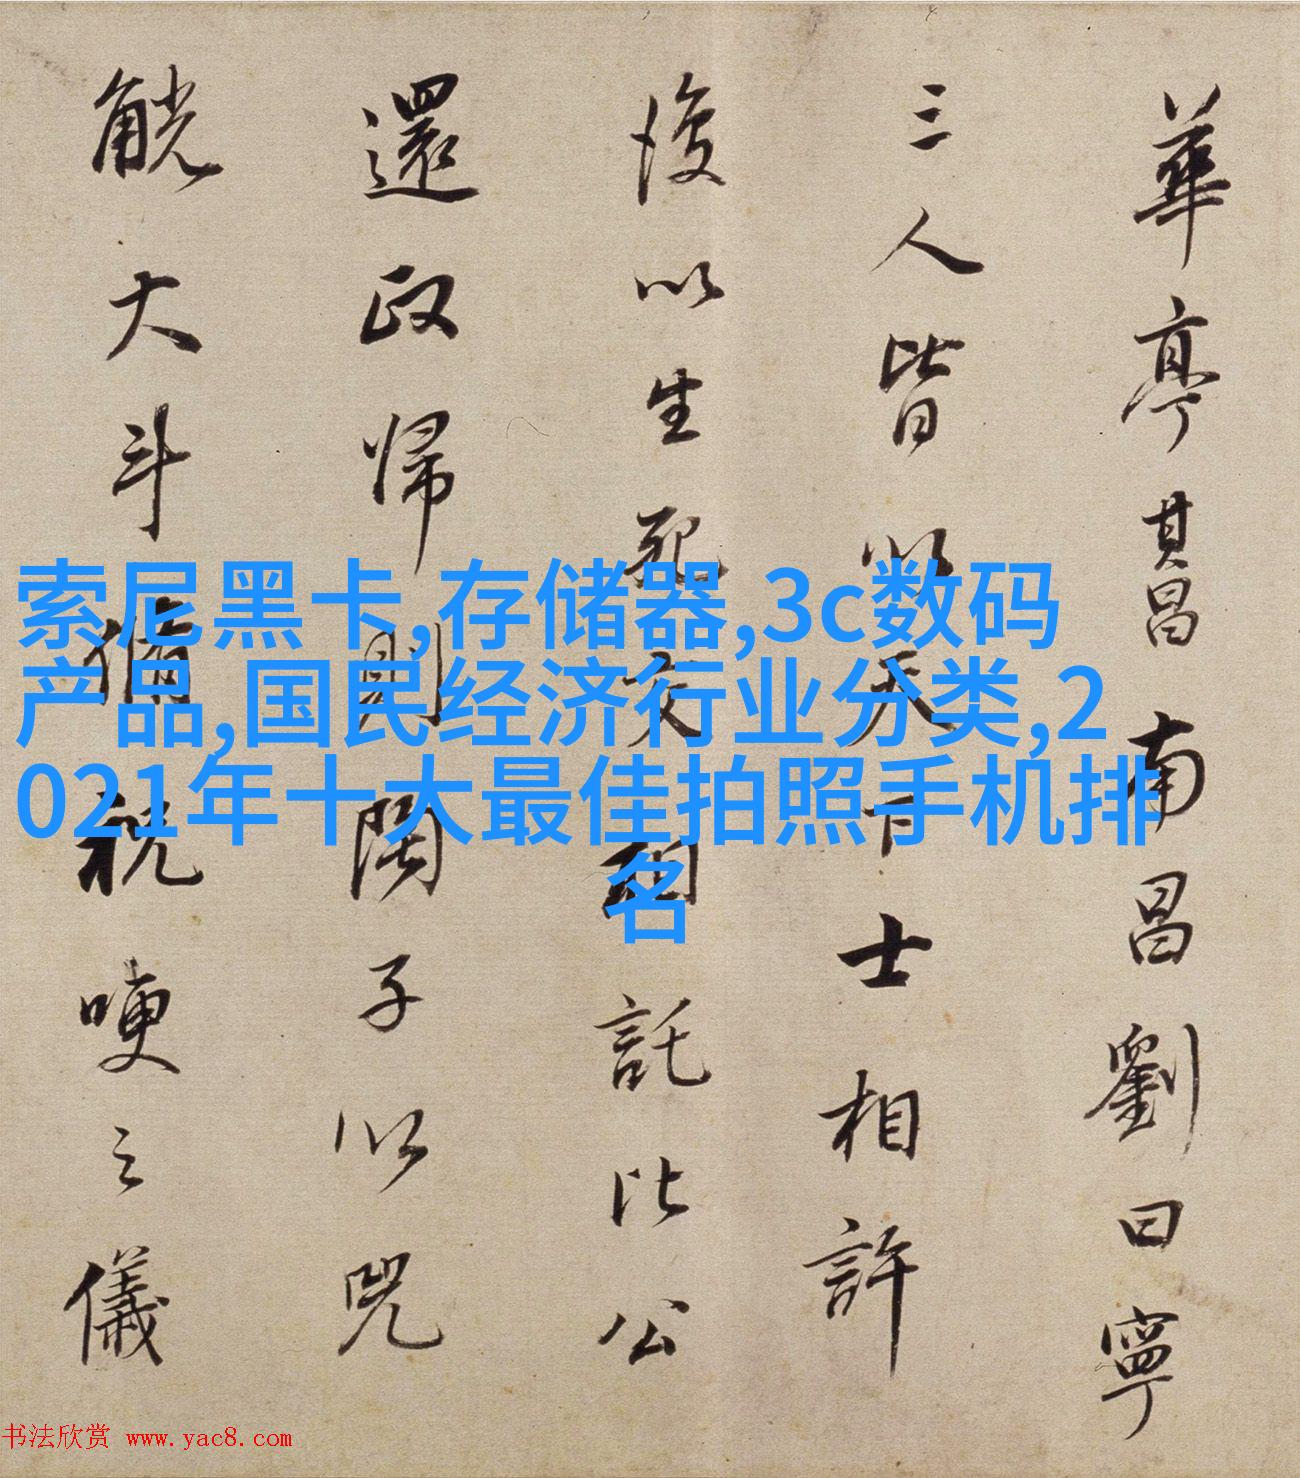 華亭其昌南昌劉曰寧
三人皆以天下士相許
後以生死交相託比公
還政歸則闕子以兕
觥大斗脩祝哽之儀
索尼黑卡,存储器,3c数码
产品,国民经济行业分类,2
021年十大最佳拍照手机排
名
书法欣赏 www.yac8.com